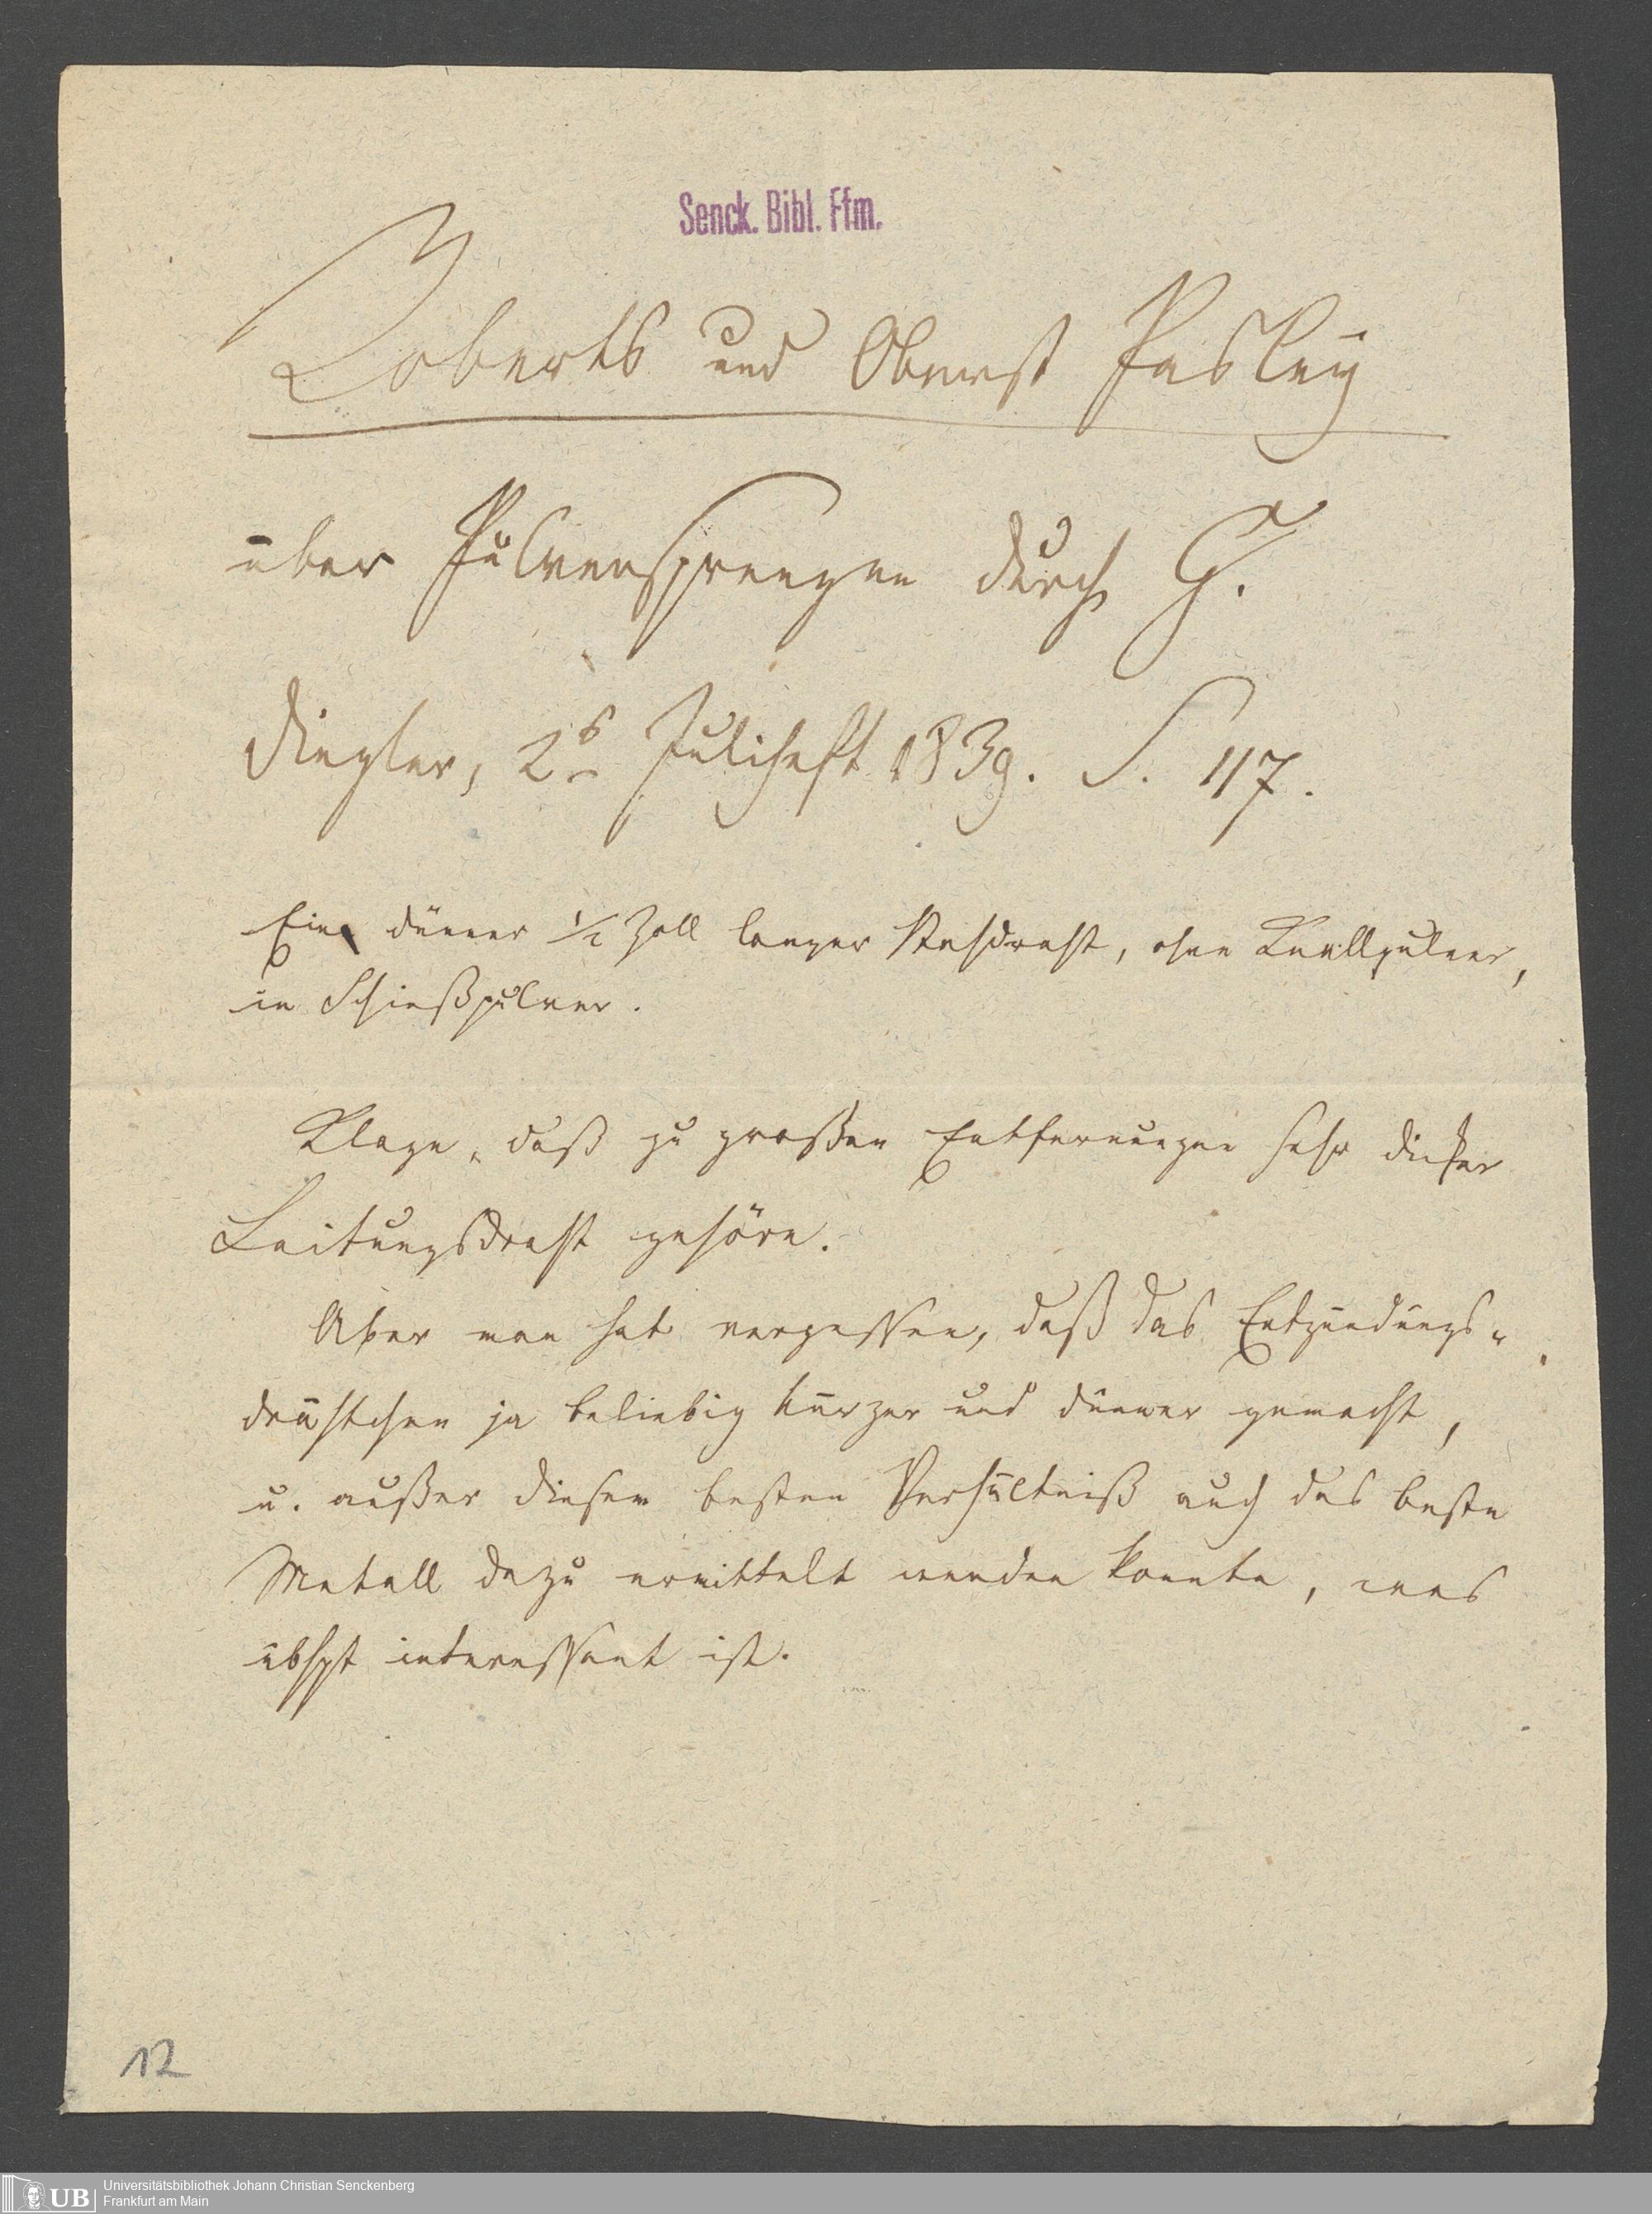 Senck. Bibl. Ffm.
Roberts und Oberst Pasley
über Pulversprengen durch G.
Dingler, 2s Juliheft 1839. S. 117.
Ein dünner 1/2 Zoll langer Stahdraht, ohne Knallpulver,
in Schießpulver.
Klage, daß zu großen Entfernungen sehr dicker
Leitungsdraht gehöre.
Aber man hat vergessen, daß das Entzündungs-
drähtchen ja beliebig kürzer und dünner gemacht,
u. außer diesem besten Verhältniß auch das beste
Metall dazu ermittelt werden konnte, was
übhpt interessant ist.
12
UB
Universitätsbibliothek Johann Christian Senckenberg
Frankfurt am Main